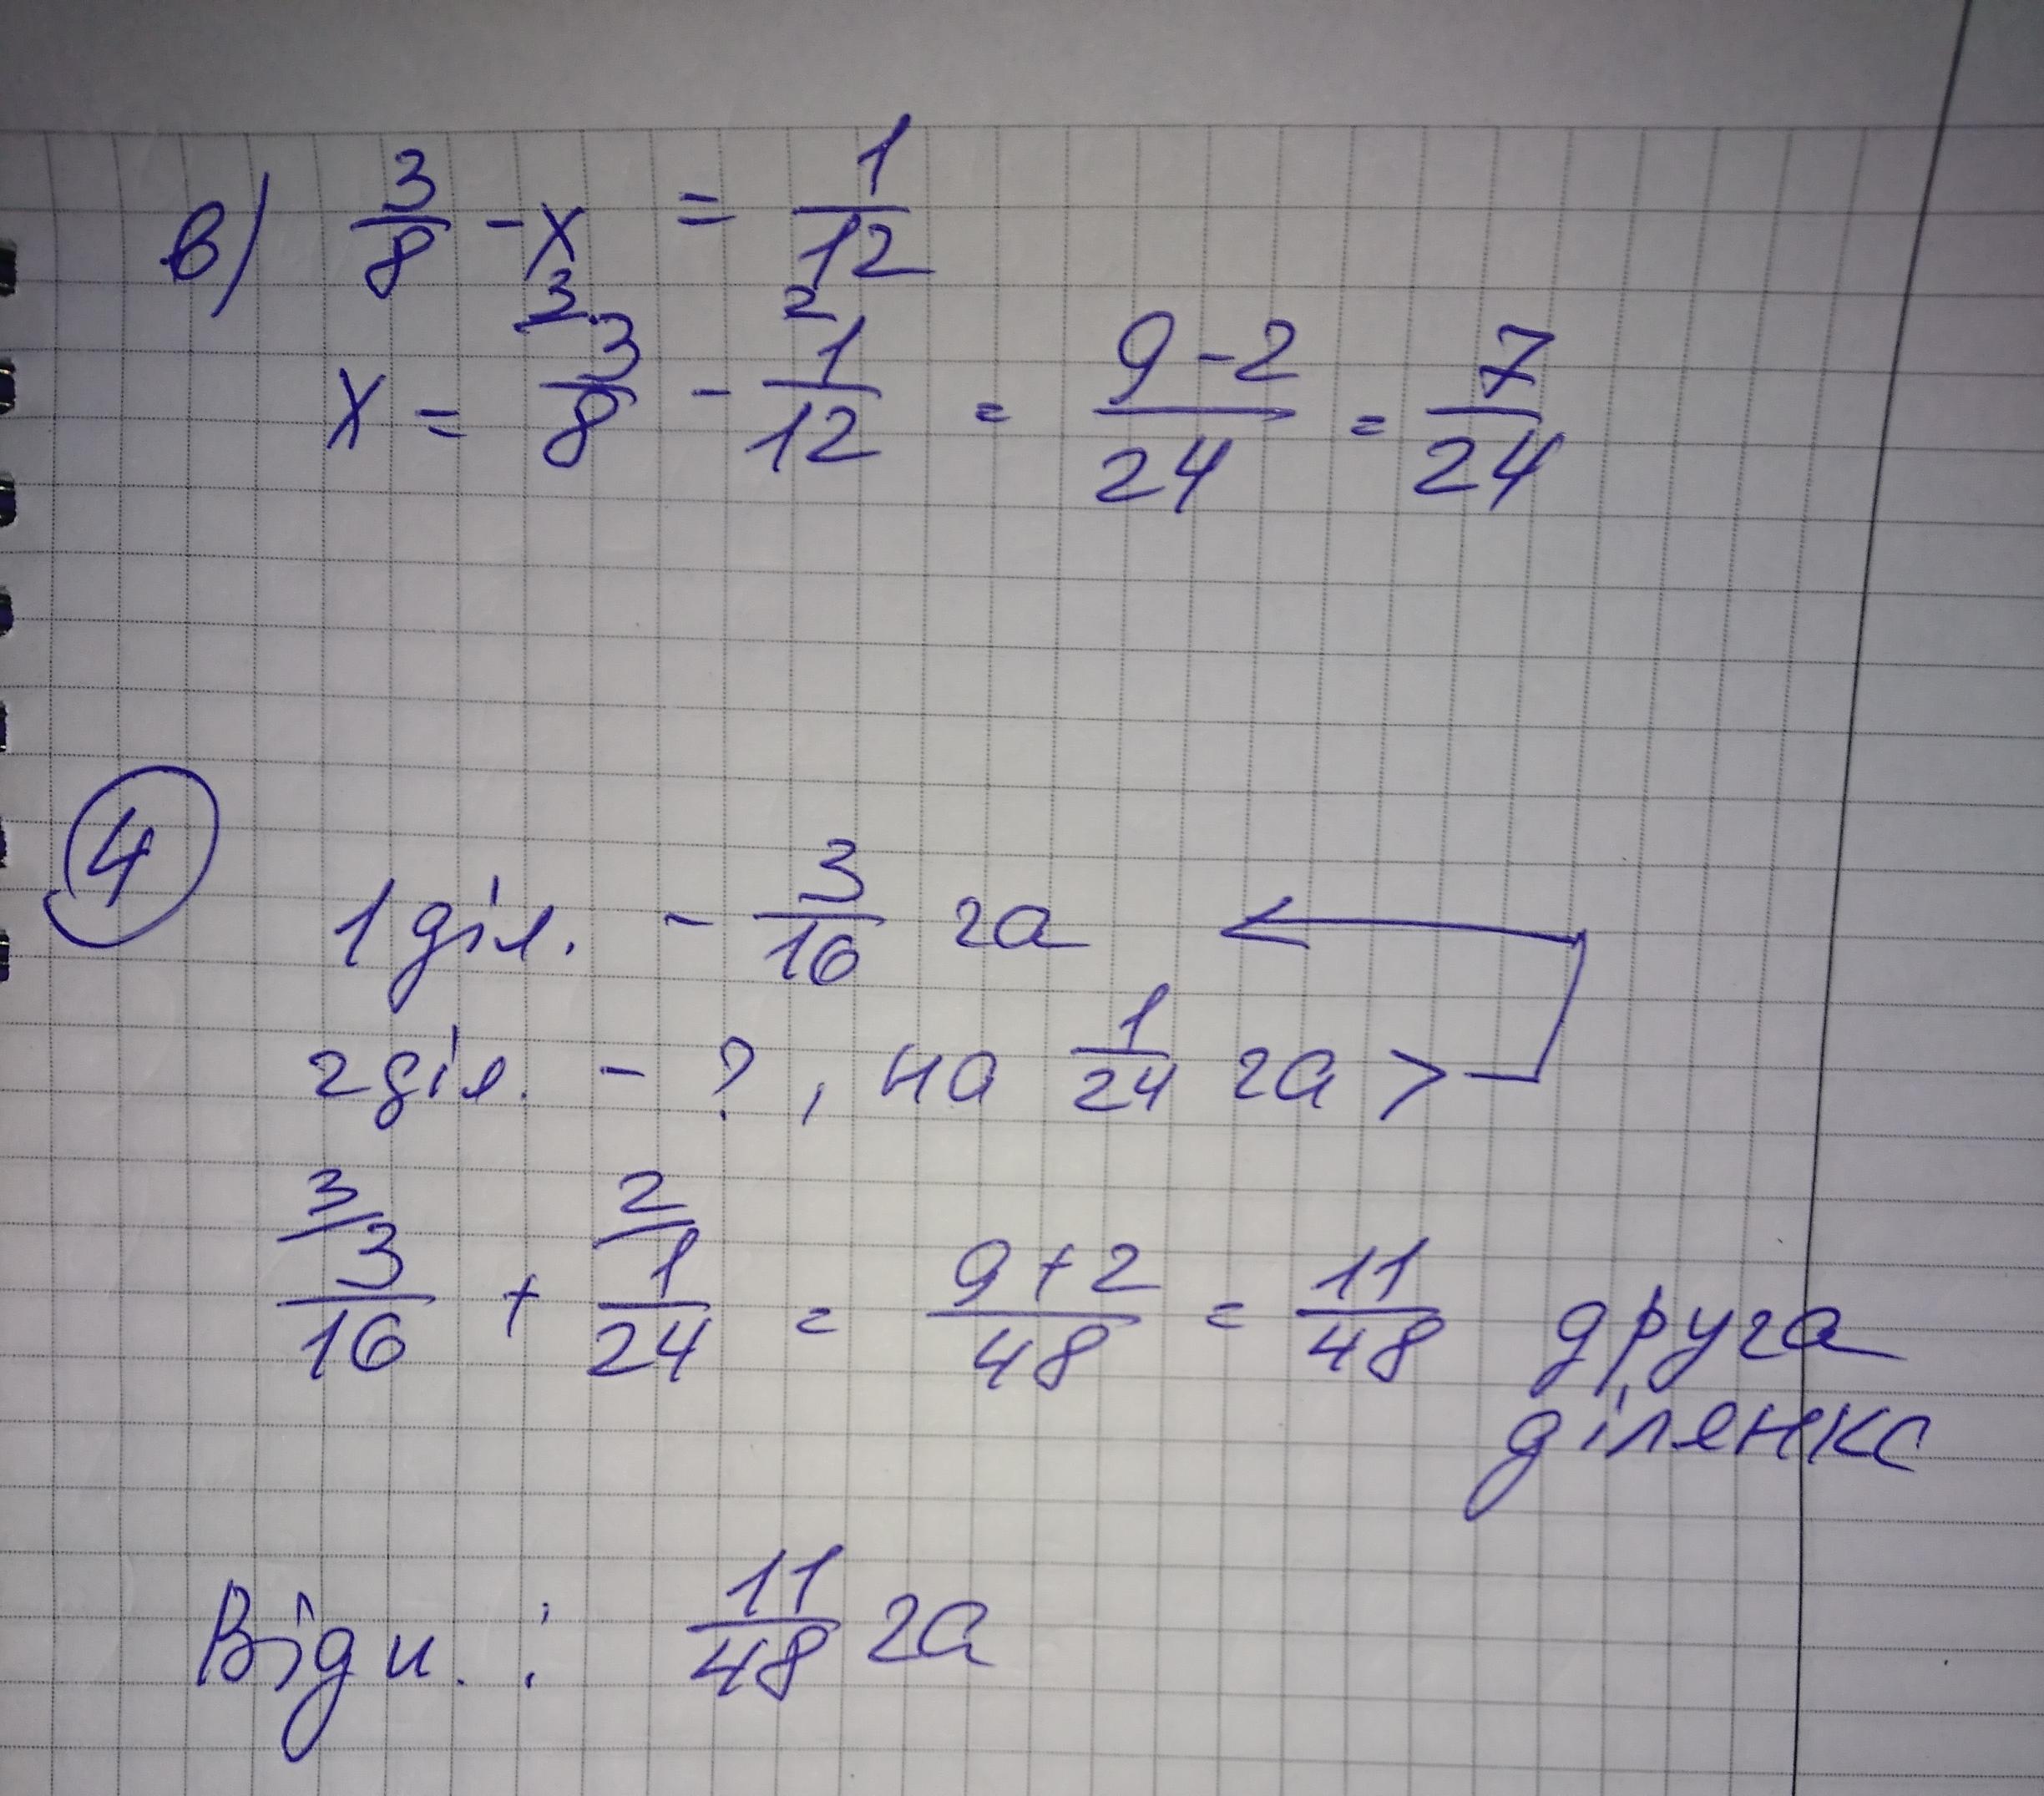 в) 3/8 - x = 1/12
x = 3/8 ^3 - 1/12 ^2 = 9-2/24 = 7/24
4
1 діл. - 3/16 га
2 діл. - ?, на 1/24 га >
3/16 ^3 + 1/24 ^2 = 9+2/48 = 11/48 друга
ділянка
Відп.: 11/48 га